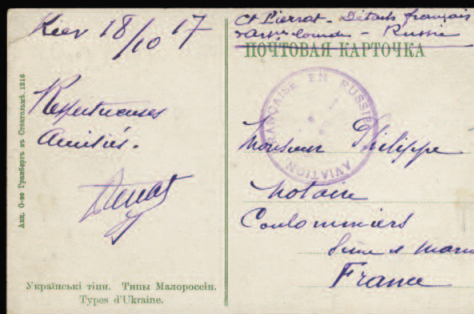 Kiev 18/10 17
Respectueuses
Amitiés.
Акц. О-во Гранбергъ въ Стокгольмѣ. 1916
Українські тіпи. Типы Малороссіи.
Types d'Ukraine.
Ct Pierrot - Détach français
d'Artie lourde - Russie
ПОЧТОВАЯ КАРТОЧКА
AVIATION FRANÇAISE EN RUSSIE
Monsieur Philippe
Notaire
Coulommiers
Seine & Marne
France